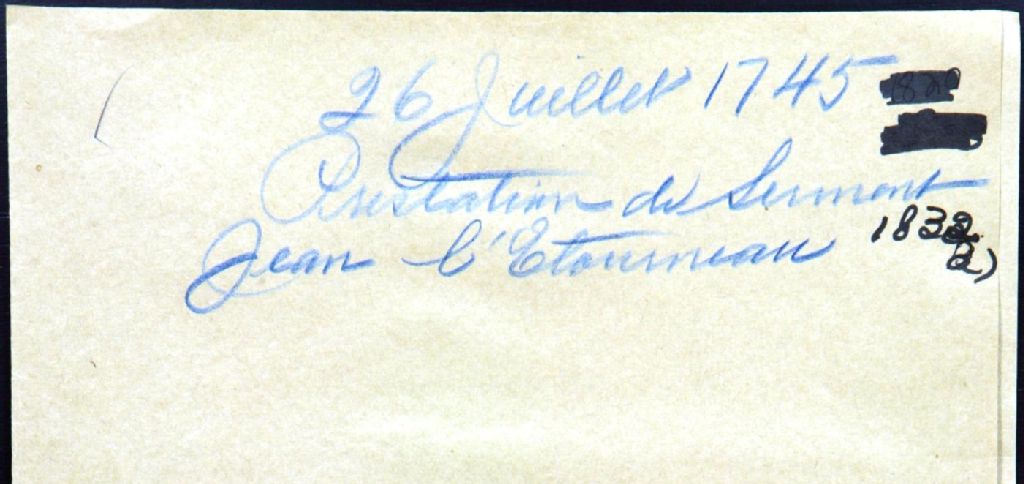 26 Juillet 1745
Prestation de Serment
Jean l'Etourneau
183
2)